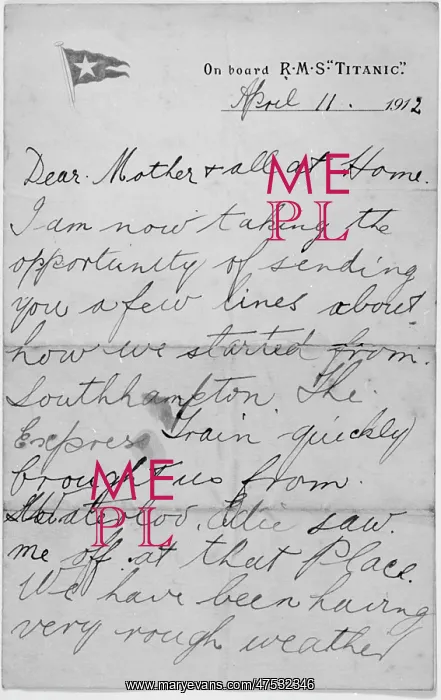 On board R·M·S· "TITANIC".
April 11. 1912
Dear. Mother & all at Home.
I am now taking the
opportunity of sending
you a few lines about
how we started from.
Southhampton. The.
Express Train quickly
brought us from.
Waterloo. Edie saw.
me off. at that Place.
We have been having
very rough weather
ME
PL
ME
PL
www.maryevans.com/47532346